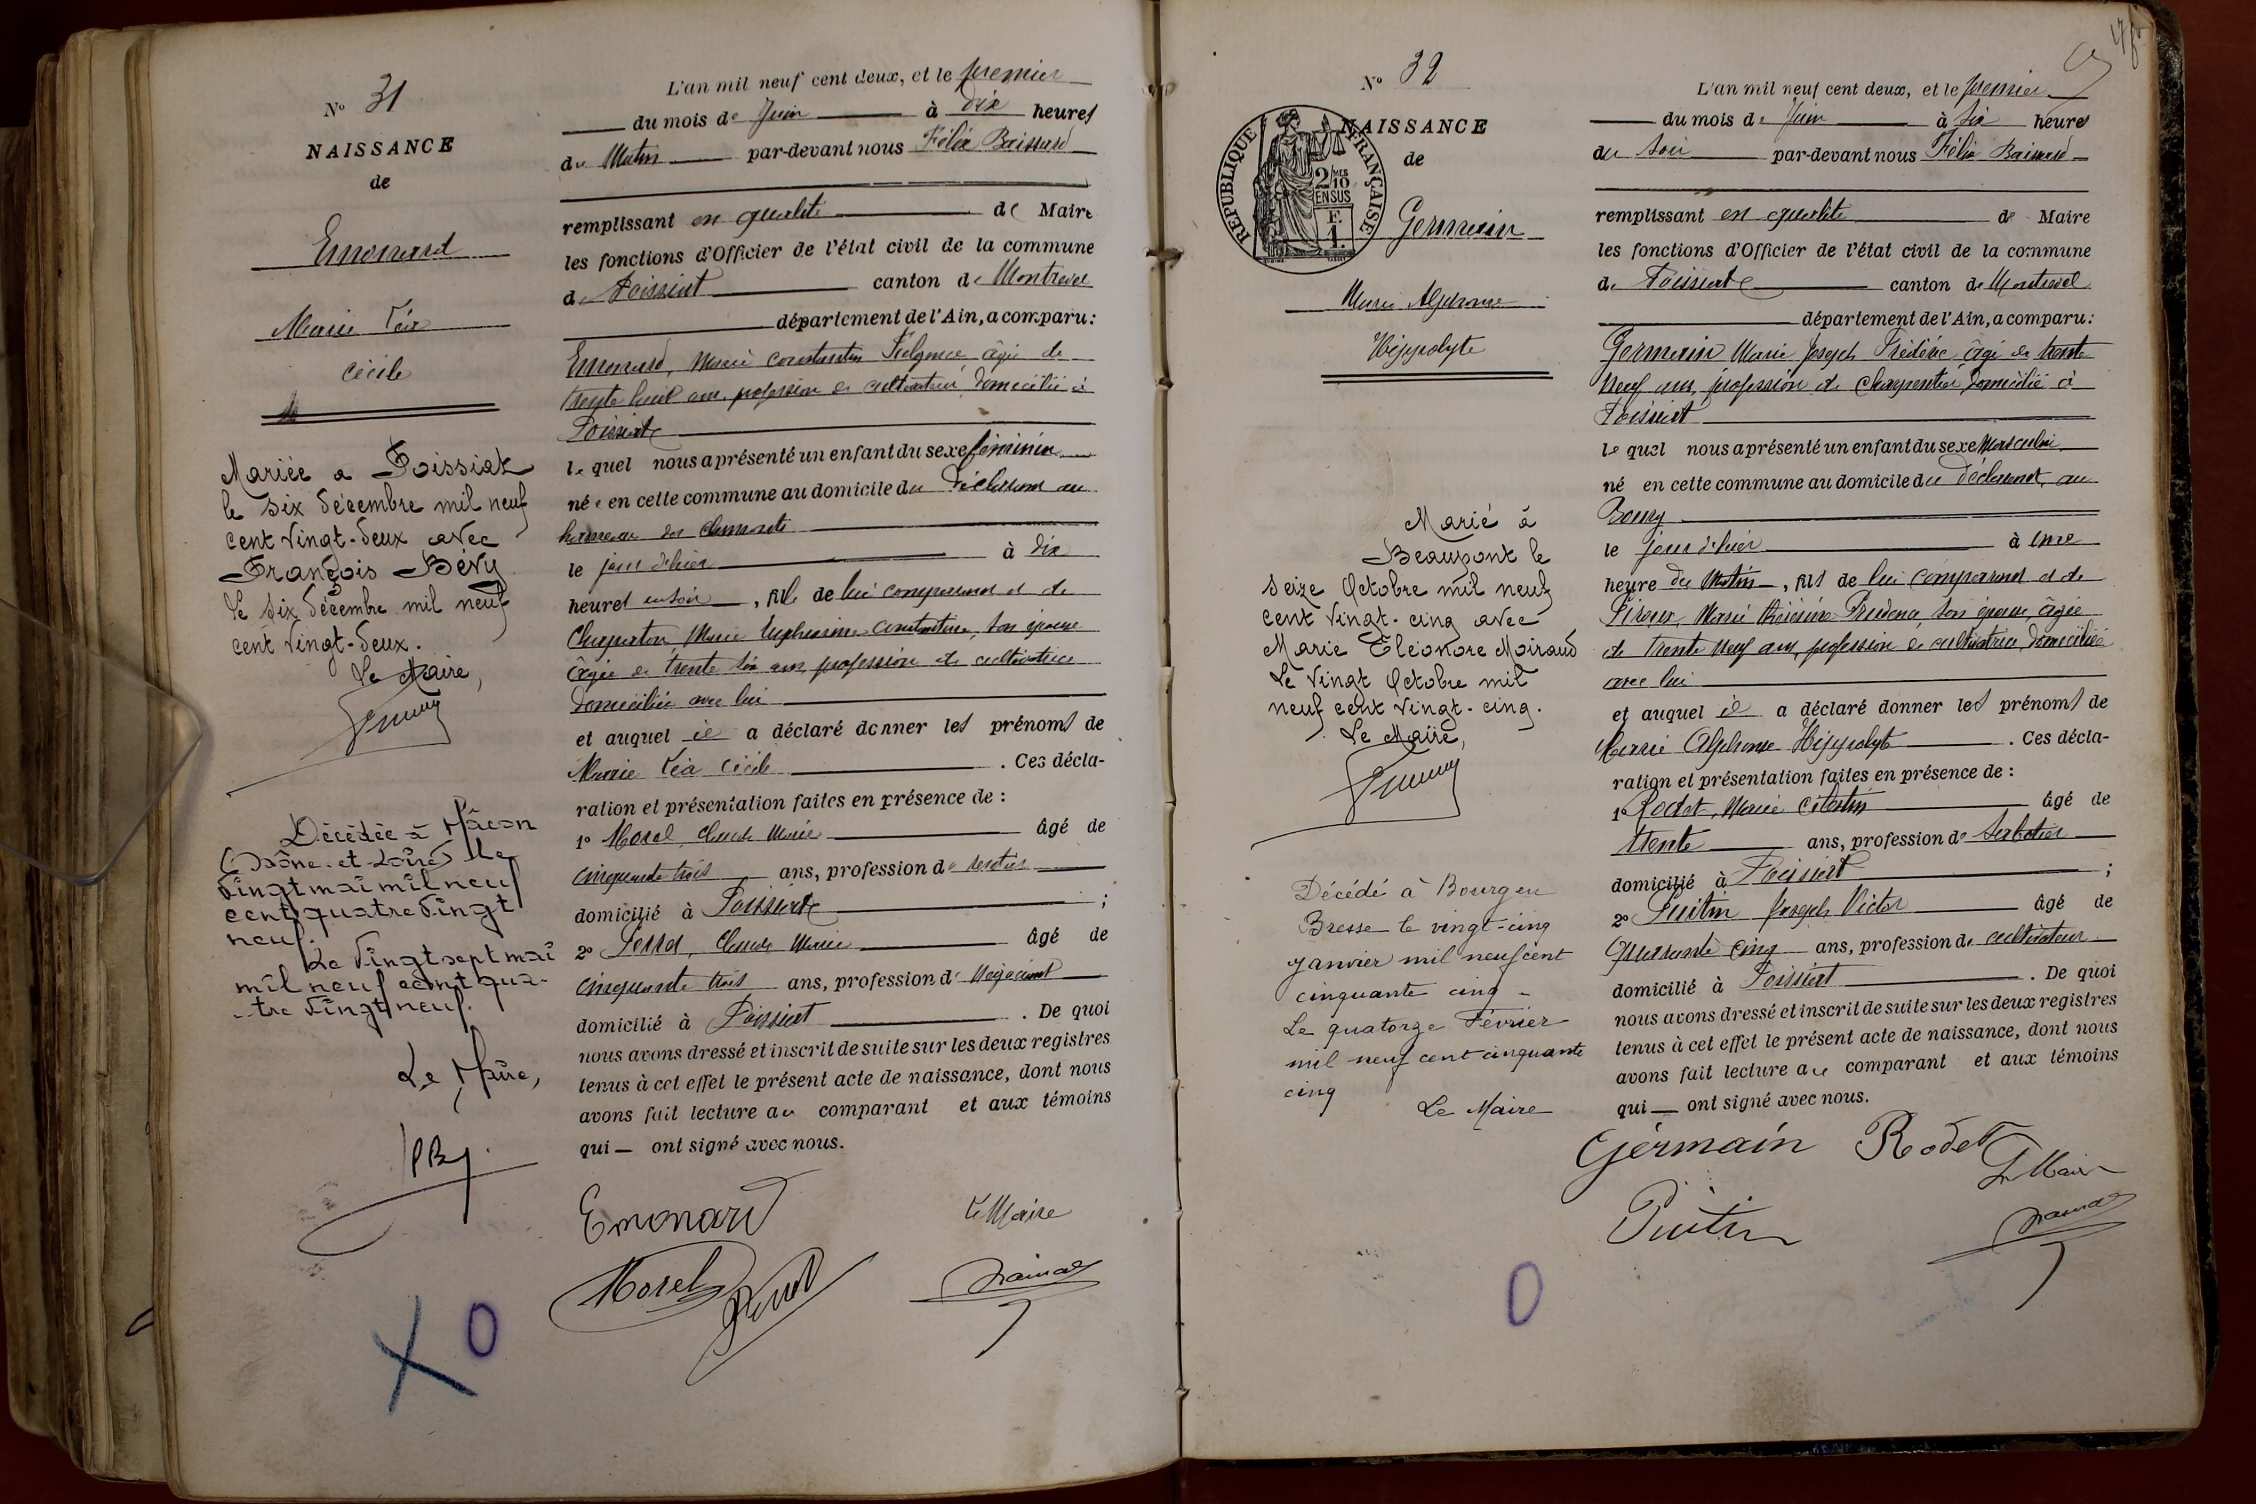 N° 31
NAISSANCE
de
Emonard
Marie Léa
Cécile
Mariée a Foissiat
le six décembre mil neuf
cent vingt-deux avec
François Bévy
Le six décembre mil neuf
cent vingt-deux.
Le Maire,
Décédée à Mâcon
(Saône-et-Loire) le
vingt mai mil neuf
cent quatre vingt
neuf.
Le vingt sept mai
mil neuf cent qua-
-tre vingt neuf.
Le Maire,
L'an mil neuf cent deux, et le premier
du mois de Juin à dix heures
du Matin par-devant nous Félix
remplissant en qualité de Maire
les fonctions d'Officier de l'état civil de la commune
de Foissiat canton de Montrevel
département de l'Ain, a comparu:
Emonard, Marie Constantin Fulgence âgé de
trente huit ans, profession de cultivateur, domicilié à
Foissiat
lequel nous a présenté un enfant du sexe féminin
née en cette commune au domicile du déclarant au
hameau des
le jour d'hier à dix
heures du soir, fille de lui comparant et de
Marie Euphrasine, son épouse
âgée de trente six ans, profession de cultivatrice
domiciliée avec lui
et auquel il a déclaré donner les prénoms de
Marie Léa Cécile. Ces décla-
ration et présentation faites en présence de:
1° Morel, Claude Marie âgé de
cinquante trois ans, profession de
domicilié à Foissiat;
2° Claude Marie âgé de
cinquante trois ans, profession de Négociant
domicilié à Foissiat. De quoi
nous avons dressé et inscrit de suite sur les deux registres
tenus à cet effet le présent acte de naissance, dont nous
avons fait lecture au comparant et aux témoins
qui — ont signé avec nous.
Emonard
Le Maire
Morel
X O
N° 32
NAISSANCE
de
RÉPUBLIQUE FRANÇAISE
2/10 MES
EN SUS
F.
1.
Germain
Marie Alphonse
Hippolyte
Marié à
Beaupont le
seize Octobre mil neuf
cent vingt-cinq avec
Marie Eléonore Moiraud
Le vingt Octobre mil
neuf cent vingt-cinq.
Le Maire,
Décédé à Bourg en
Bresse le vingt-cinq
janvier mil neuf cent
cinquante cinq -
Le quatorze Février
mil neuf cent cinquante
cinq
Le Maire
L'an mil neuf cent deux, et le premier
du mois de Juin à six heures
du soir par-devant nous Félix
remplissant en qualité de Maire
les fonctions d'Officier de l'état civil de la commune
de Foissiat canton de Montrevel
département de l'Ain, a comparu:
Germain Marie Joseph Frédéric âgé de trente
neuf ans, profession de charpentier, domicilié à
Foissiat
lequel nous a présenté un enfant du sexe masculin
né en cette commune au domicile du déclarant, au
Bourg
le jour d'hier à une
heure du Matin, fils de lui comparant et de
Marie, son épouse, âgée
de trente neuf ans, profession de cultivatrice, domiciliée
avec lui
et auquel il a déclaré donner les prénoms de
Marie Alphonse Hippolyte. Ces décla-
ration et présentation faites en présence de:
1° Rodet, Marie Célestin âgé de
trente ans, profession de Sabotier
domicilié à Foissiat;
2° Puitin Joseph Victor âgé de
quarante cinq ans, profession de cultivateur
domicilié à Foissiat. De quoi
nous avons dressé et inscrit de suite sur les deux registres
tenus à cet effet le présent acte de naissance, dont nous
avons fait lecture au comparant et aux témoins
qui — ont signé avec nous.
Germain Rodet
Le Maire
Puitin
O